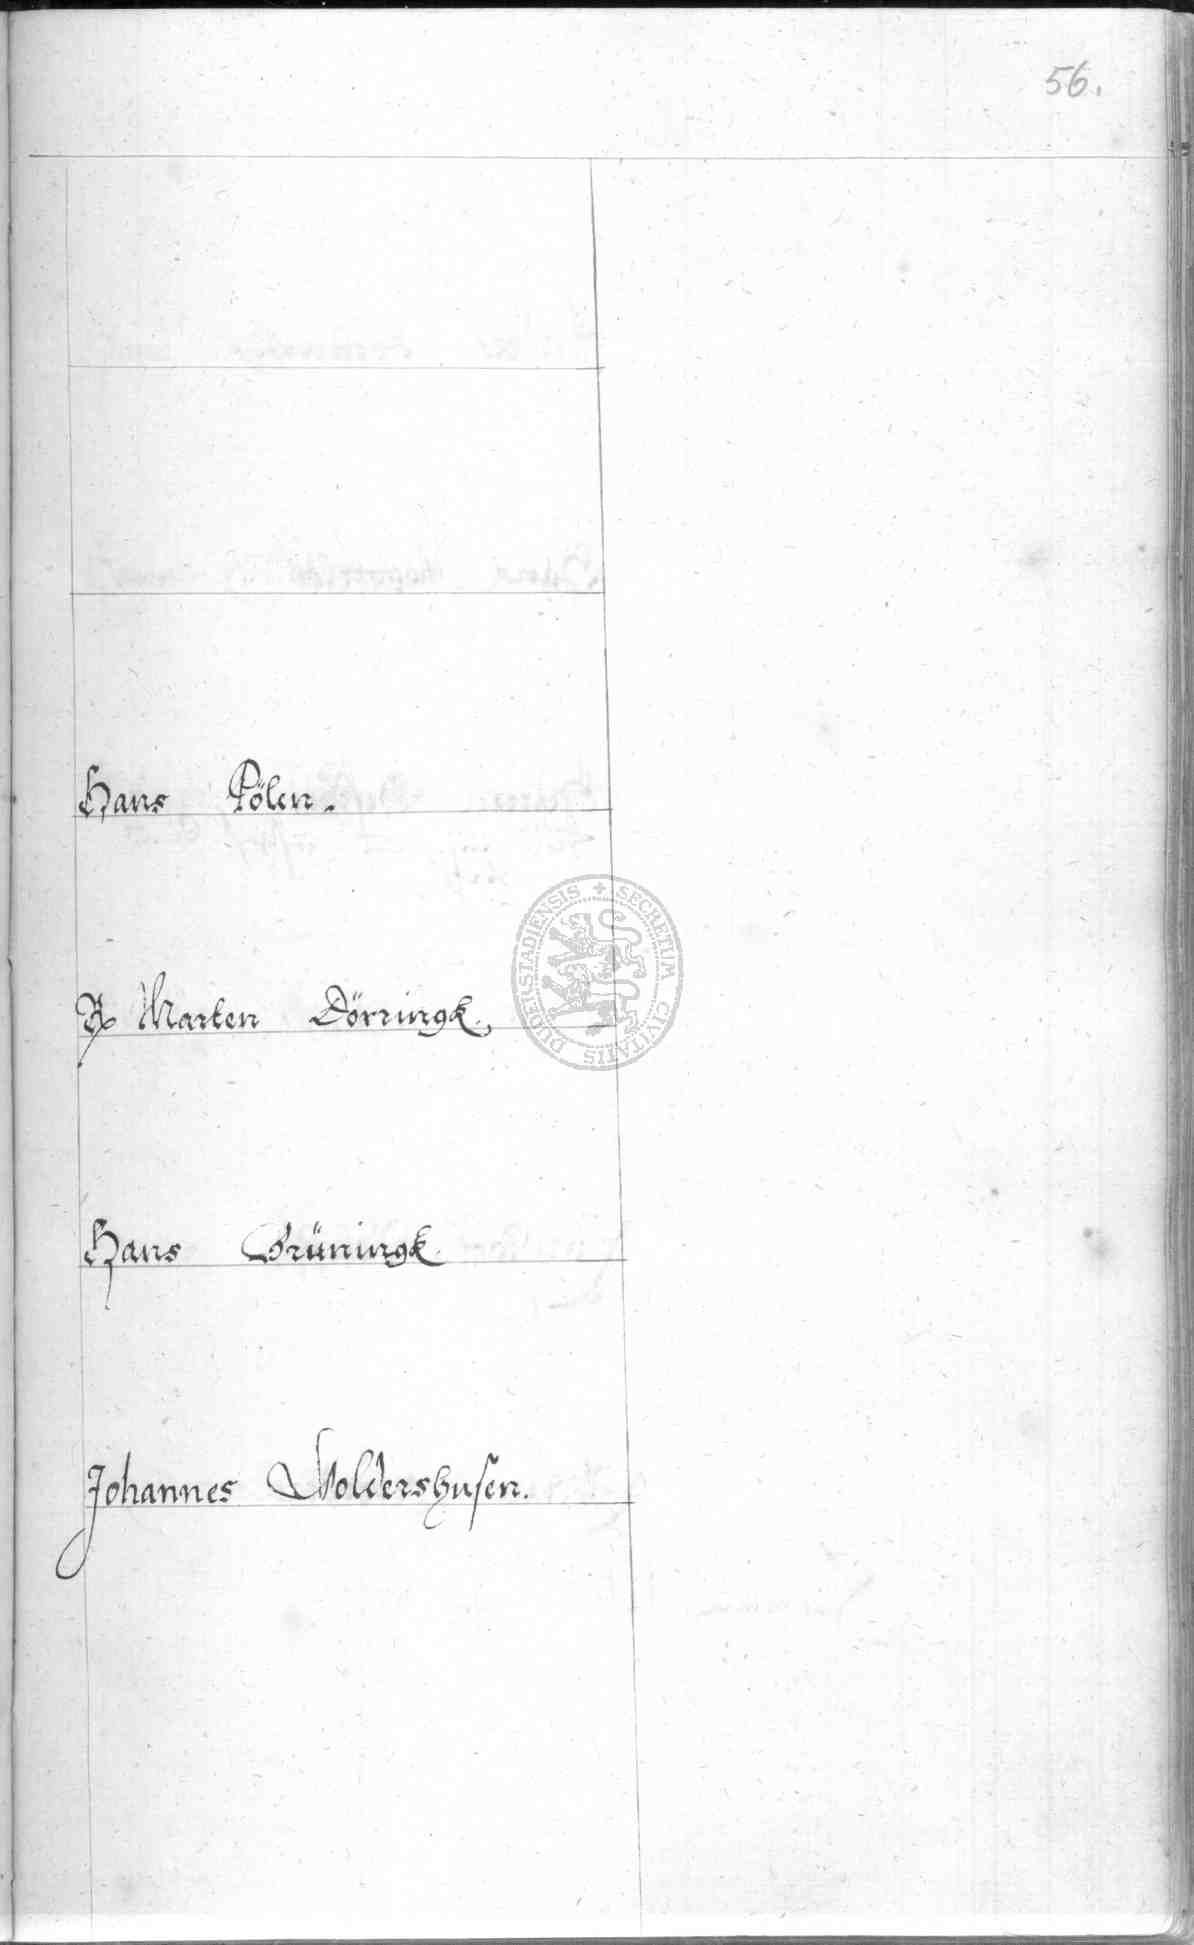 56.
Hans Pölen.
Marten Dörringk.
Hans Grüningk.
Johannes Woldershusen.
SECRETUM CIVITATIS DUDERSTADIENSIS